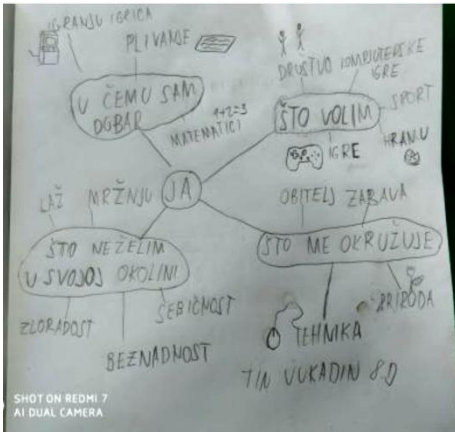 IGRANJU IGRICA
PLIVANJE
U ČEMU SAM
DOBAR
MATEMATICI
1+2=3
DRUŠTVO
KOMPJUTERSKE
IGRE
ŠTO VOLIM
SPORT
HRANU
IGRE
JA
LAŽ
MRŽNJU
ŠTO NEŽELIM
U SVOJOJ OKOLINI
ZLORADOST
BEZNADNOST
SEBIČNOST
OBITELJ
ZABAVA
ŠTO ME OKRUŽUJE
PRIRODA
TEHNIKA
TIN VUKADIN 8.D
SHOT ON REDMI 7
AI DUAL CAMERA